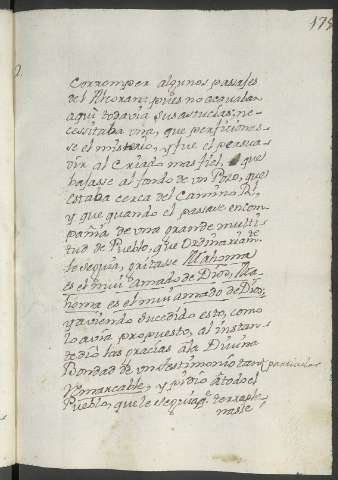 175
Corromper algunos passajes
del Alcoran: pues no acavaban
aqui todavia sus astucias, ne-
cessitaba una, que perficionas-
se el misterio, y fue el persua-
dir al Criado mas fiel, que
bajasse al fondo de un Pozo, que
estaba cerca del Camino Rl,
y que quando el pasase en com-
pañia de una grande multi-
tud de Pueblo, que Ordinariam.te
lo seguia, gritasse Mahoma
es el mui amado de Dios, Ma-
homa es el mui amado de Dios,
y aviendo sucedido esto, como
lo avia propuesto, al instan-
te dio las gracias a la Divina
Bondad de un testimonio tan particular
Remarcable, y pidio a todo el
Pueblo, que le seguia, q.e terraple-
nasse